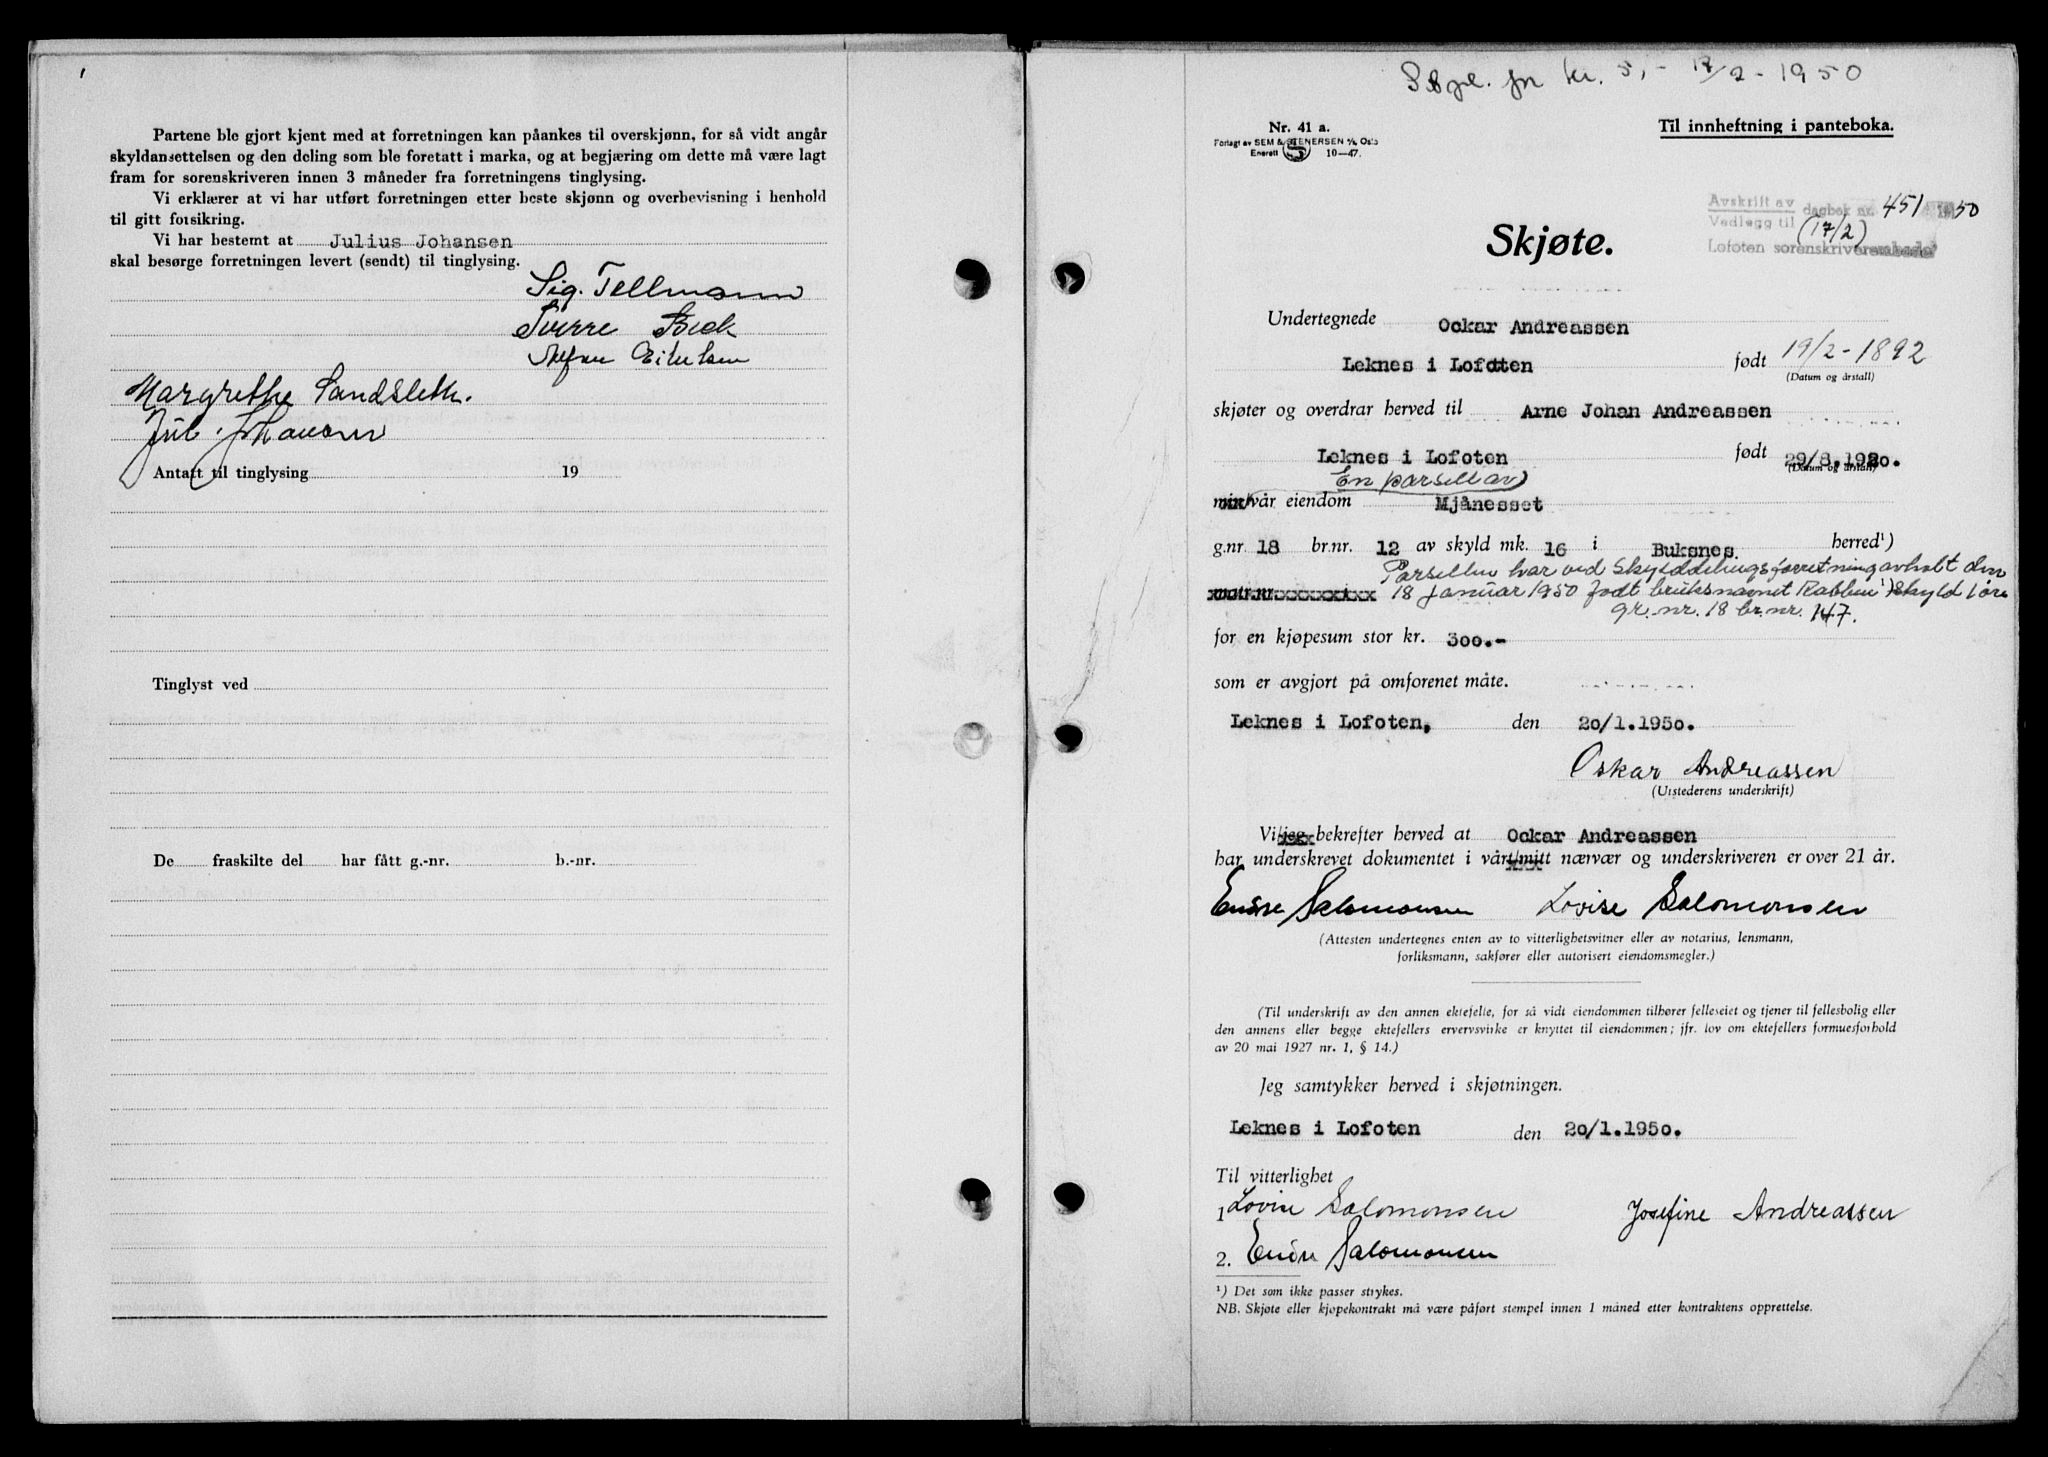 Partene ble gjort kjent med at forretningen kan påankes til overskjønn, for så vidt angår
skyldansettelsen og den deling som ble foretatt i marka, og at begjæring om dette må være lagt
fram for sorenskriveren innen 3 måneder fra forretningens tinglysing.
Vi erklærer at vi har utført forretningen etter beste skjønn og overbevisning i henhold
til gitt forsikring.
Vi har bestemt at Julius Johansen
skal besørge forretningen levert (sendt) til tinglysing.
Sig. Tellmann
Sverre
Margrethe Sandsleth.
Jul. Johansen
Antatt til tinglysing 19
Tinglyst ved
De fraskilte del har fått g.-nr. b.-nr.
kr. 5,- 17/2-1950
Nr. 41 a.
Forlagt av SEM & STENERSEN A/S, Oslo
Enerett 10-47.
Til innheftning i panteboka.
Avskrift av
Vedlegg til dagbok nr. 451 1950
(17/2)
Lofoten sorenskriverembede
Skjøte.
Undertegnede Ockar Andreassen
Leknes i Lofoten født 19/2-1892
(Datum og årstall)
skjøter og overdrar herved til Arne Johan Andreassen
Leknes i Lofoten født 29/8.1920.
(Datum og årstall)
En parsell av)
min/vår eiendom Mjånesset
g.nr 18 br.nr. 12 av skyld mk. 16 i Buksnes. herred¹)
Parsellen har ved Skylddelingsforretning avholt den
matr.nr. 18 Januar 1950 fodt bruksnavnet Rabben ¹) skyld 1 øre
gr. nr. 18 br. nr. 147.
for en kjøpesum stor kr. 300.-
som er avgjort på omforenet måte.
Leknes i Lofoten, den 20/1.1950.
Oskar Andreassen
(Utstederens underskrift)
Vi/jeg bekrefter herved at Ockar Andreassen
har underskrevet dokumentet i vårt/mitt nærvær og underskriveren er over 21 år.
Endre Salomonsen Lovise Salomonsen
(Attesten undertegnes enten av to vitterlighetsvitner eller av notarius, lensmann,
forliksmann, sakfører eller autorisert eiendomsmegler.)
(Til underskrift av den annen ektefelte, for så vidt eiendommen tilhører felleseiet og tjener til fellesbolig eller
den annens eller begge ektefellers ervervsvirke er knyttet til eiendommen; jfr. lov om ektefellers formuesforhold
av 20 mai 1927 nr. 1, § 14.)
Jeg samtykker herved i skjøtningen.
Leknes i Lofoten den 20/1.1950.
Til vitterlighet
1 Lovise Salomonsen Josefine Andreassen
2. Endre Salomonsen
¹) Det som ikke passer strykes.
NB. Skjøte eller kjøpekontrakt må være påført stempel innen 1 måned etter kontraktens opprettelse.